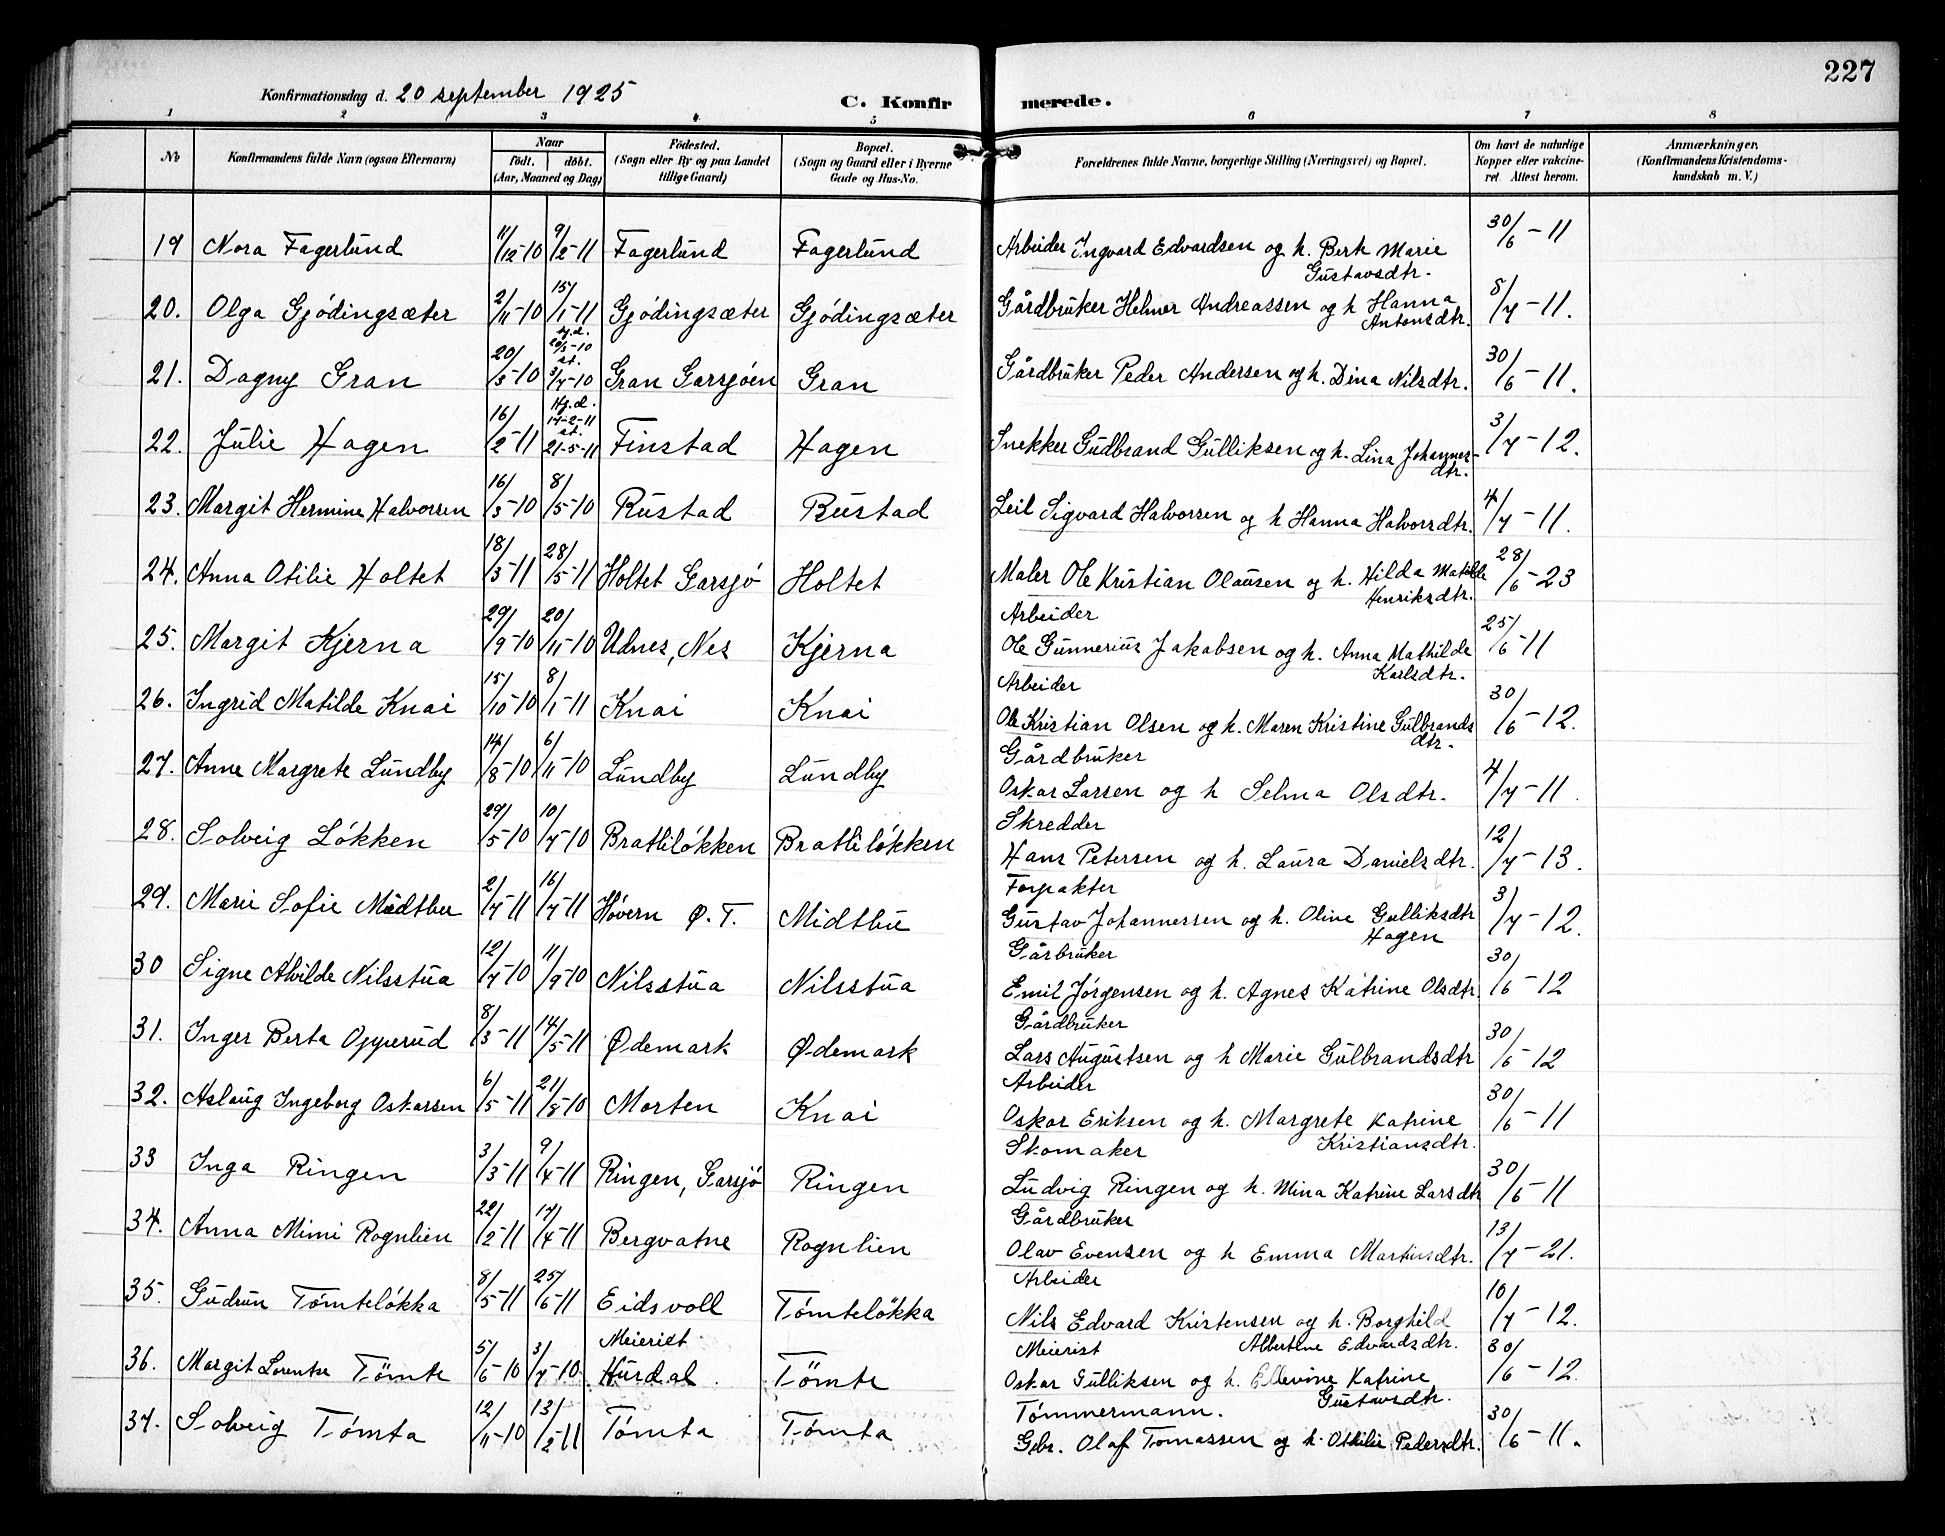 227
Konfirmationsdag d. 20 september 1925
C. Konfirmerede.
1 2 3 4 5 6 7 8
No
Konfirmandens fulde Navn (ogsaa Efternavn)
Naar
födt. döbt.
(Aar, Maaned og Dag)
Födested.
(Sogn eller By og paa Landet
tillige Gaard)
Bopæl.
(Sogn og Gaard eller i Byerne
Gade og Hus-No.
Forældrenes fulde Navne, borgerlige Stilling (Næringsvei) og Bopæl.
Om havt de naturlige
Kopper eller vaccine-
ret Attest herom.
Anmærkninger.
(Konfirmandens Kristendoms-
kundskab m. V.)
19 Nora Fagerlund 11/12-10 9/2-11 Fagerlund Fagerlund Arbeider Ingvard Edvardsen og h. Berte Marie 30/6-11
Gustavsdtr.
20. Olga Gjödingsæter 2/11-10 15/1-11 Gjödingsæter Gjödingsæter Gårdbruker Helmer Andreassen og h Hanna 8/7-11.
Antonsdtr.
hj.d.
20/3-10
st.
21. Dagny Gran 20/3-10 3/7-10 Gran Garsjöen Gran Gårdbruker Peder Andersen og h. Dina Nilsdtr. 30/6-11.
Hj.d.
17-2-11
st.
22. Julie Hagen 16/2-11 21-5-11 Finstad Hagen Snekker Gudbrand Gulliksen og h. Lina Johannes- 3/7-12.
dtr.
23. Margit Hermine Halvorsen 16/3-10 8/5-10 Rustad Rustad Leil Sigvard Halvorsen og h Hanna Halvorsdtr. 4/7-11.
24. Anna Otilie Holtet 18/3-11 28/5-11 Holtet Garsjö Holtet Maler Ole Kristian Olausen og h. Hilda Matilde 28/6-23
Henriksdtr.
Arbeider
25. Margit Kjerna 29/9-10 20/11-10 Udnes, Nes Kjerna Ole Gunnerius Jakobsen og h. Anna Mathilde 25/6-11
Karlsdtr.
Arbeider
26. Ingrid Matilde Knai 15/10-10 8/1-11 Knai Knai Ole Kristian Olsen og h. Maren Kristine Gulbrands 30/6-12.
dtr.
Gårdbruker
27. Anne Margrete Lundby 14/8-10 6/11-10 Lundby Lundby Oskar Larsen og h Selma Olsdtr. 4/7-11.
Skredder
28. Solveig Lökken 29/5-10 10/7-10 Brattilökken Brattilökken Hans Petersen og h. Laura Danielsdtr. 12/7-13.
Forpakter
29. Marie Sofie Midtbu 2/4-11 16/7-11 Hövern Ø.T. Midtbu Gustav Johannessen og h. Oline Gulliksdtr 3/7-12.
Hagen
Gårbruker
30 Signe Alvilde Nilsstua 12/7-10 11/9-10 Nilsstua Nilsstua Emil Jörgensen og h. Agnes Katrine Olsdtr. 30/6-12
Gårdbruker
31. Inger Berta Opperud 8/3-11 14/5-11 Ødemark Ødemark Lars Augustsen og h Marie Gulbrandsdtr 30/6-12
Arbeider
32. Aslaug Ingeborg Oskarsen 6/5-11 21/8-10 Morten Knai Oskar Eriksen og h. Margrete Katrine 30/6-11
Kristiansdtr.
Skomaker
33 Inga Ringen 3/3-11 9/4-11 Ringen, Garsjö Ringen Ludvig Ringen og h. Mina Katrine Larsdtr 30/6-11
Gårdbruker
34. Anna Mimi Rognlien 22/2-11 17/4-11 Bergvatne Rognlien Olav Evensen og h Emma Martinsdtr. 13/7-21.
Arbeider
35. Gudrun Tömtelökka 8/5-11 25/6-11 Eidsvoll Tömtelökka Nils Edvard Kristensen og h. Borghild 10/7-12.
Albertine Edvardsdtr.
Meieriet Meierist
36. Margit Lorentse Tömte 5/6-10 3/7-10 Hurdal. Tömte Oskar Gulliksen og h. Ellevine Katrine 30/6-12.
Gustavsdtr.
Tömmermann.
37. Solveig Tömta 12/11-10 13/2-11 Tömta Tömta Gebr. Olaf Tomassen og h. Othilie Pedersdtr. 30/6-11.